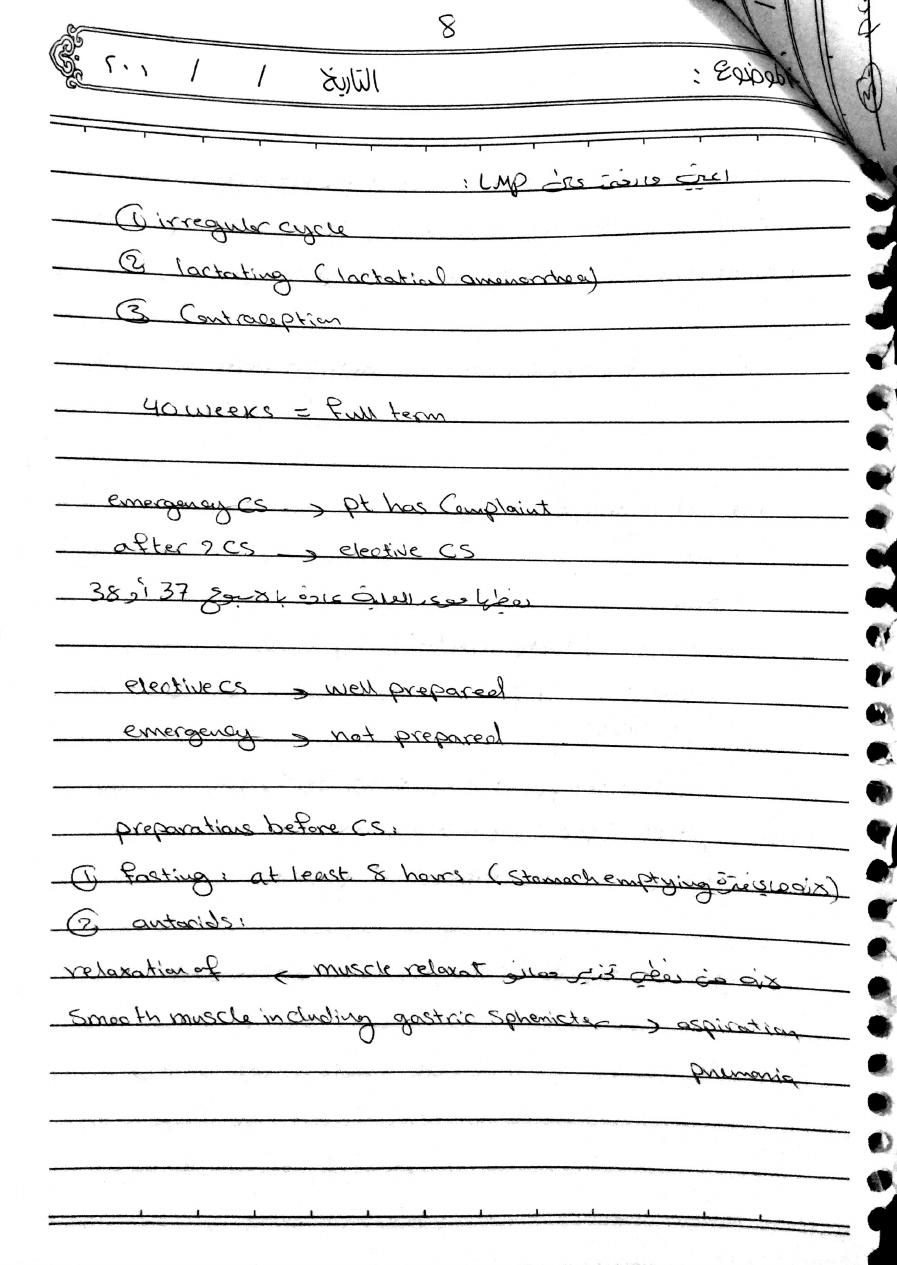 8
الموضوع : التاريخ / / ٢٠١
LMP :
① irregular cycle
② lactating (lactatial amenorrhea)
③ Contraception
40 weeks = full term
emergency CS → pt has Complaint
after 2 CS → elective CS
العملية عادة بالاسبوع 37 أو 38
elective CS → well prepared
emergency → not prepared
preparations before CS:
① fasting: at least 8 hours (stomach emptying)
② antacids:
muscle relaxat → relaxation of
smooth muscle including gastric sphenicter → aspiration
pnemonia